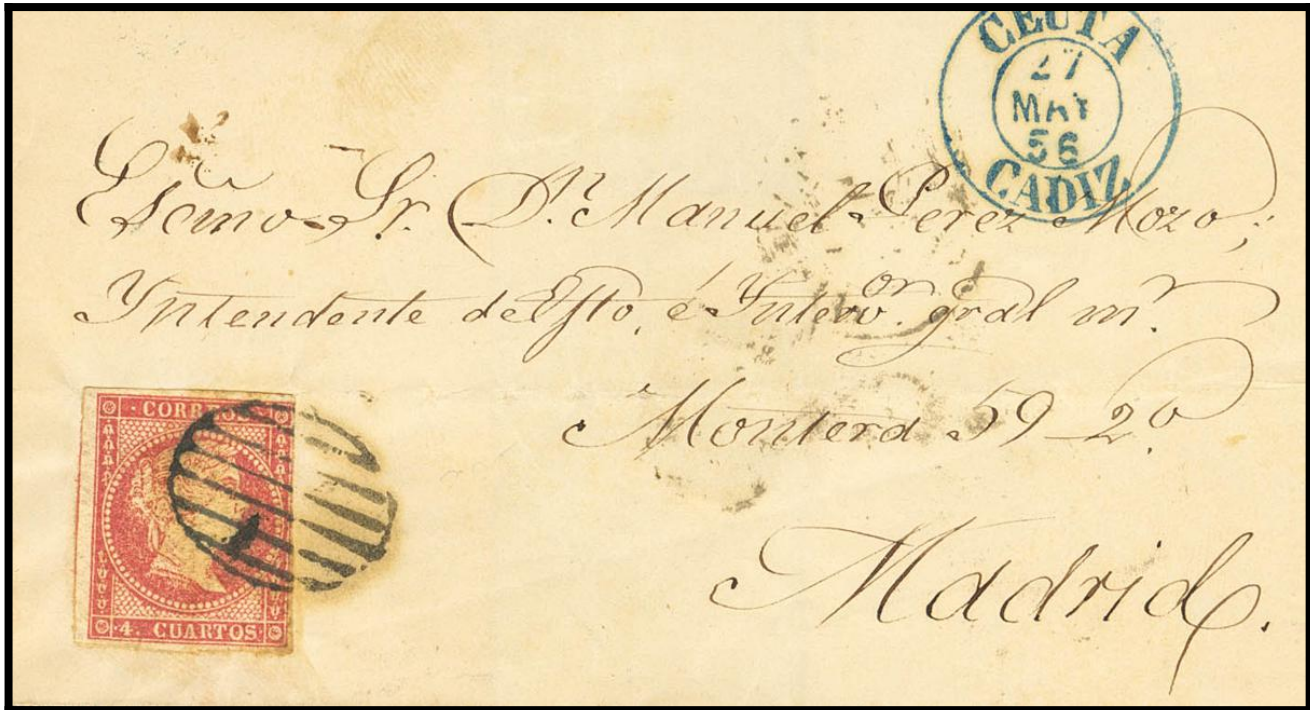 CEUTA
27
MAY
56
CADIZ
Escmo. Sr. Dn. Manuel Perez Mozo;
Yntendente de Efto, é Yntervor. gral mr.
Montera 59 - 2o
Madrid.
CORREOS
4. CUARTOS